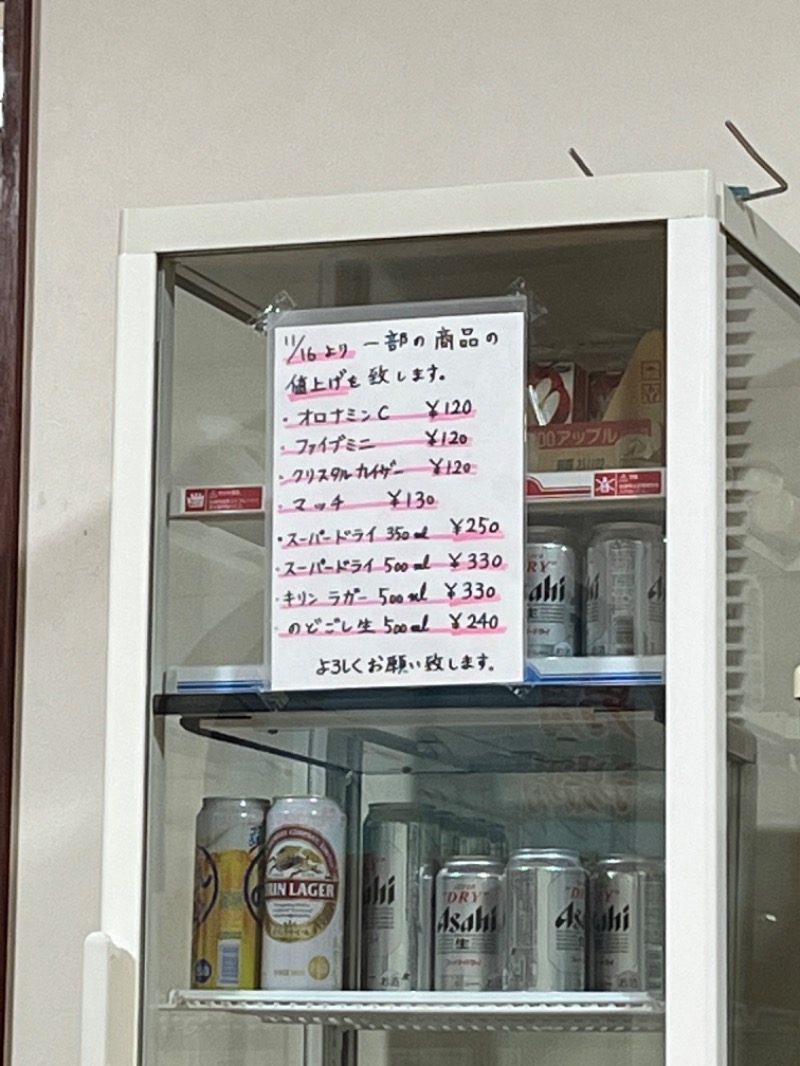 11/16より 一部の商品の
値上げを致します。
・オロナミンC ¥120
・ファイブミニ ¥120
・クリスタルカイザー ¥120
・マッチ ¥130
・スーパードライ 350ml ¥250
・スーパードライ 500ml ¥330
・キリン ラガー 500ml ¥330
・のどごし生 500ml ¥240
よろしくお願い致します。
00アップル
RY"
ahi
生
KIRIN LAGER
ahi
"DRY"
Asahi
生
"D
As
RY"
ahi